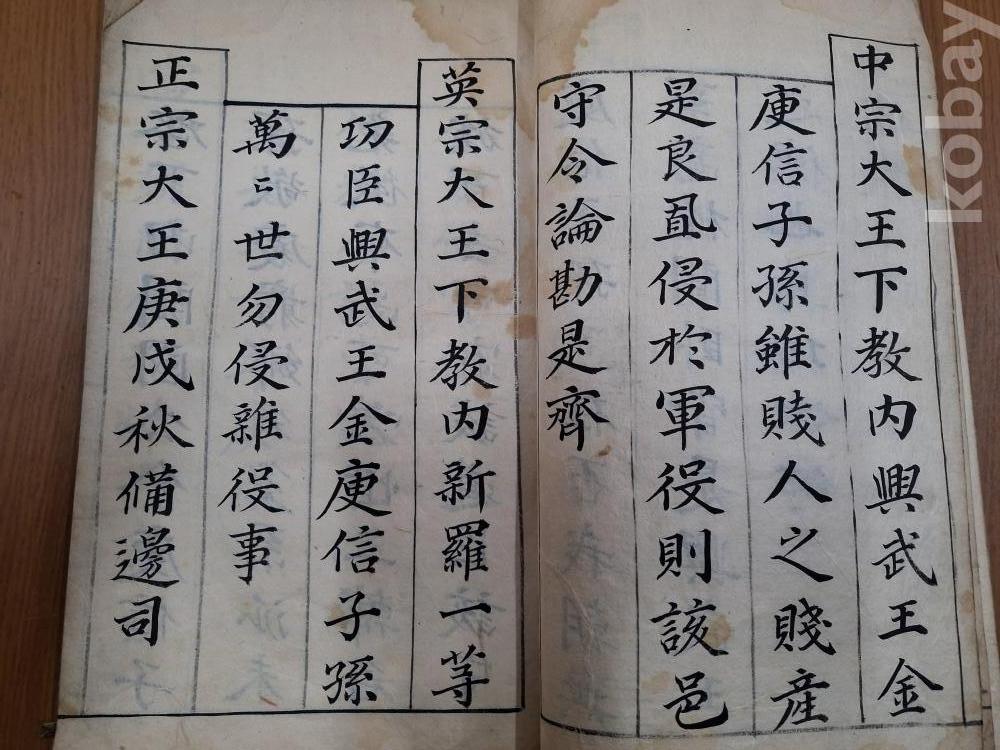 中宗大王下教内興武王金
庾信子孫雖賤人之賤産
是良置侵於軍役則該邑
守令論勘是齊
英宗大王下教内新羅一等
功臣興武王金庾信子孫
萬〻世勿侵雜役事
正宗大王庚戌秋備邊司
kobay